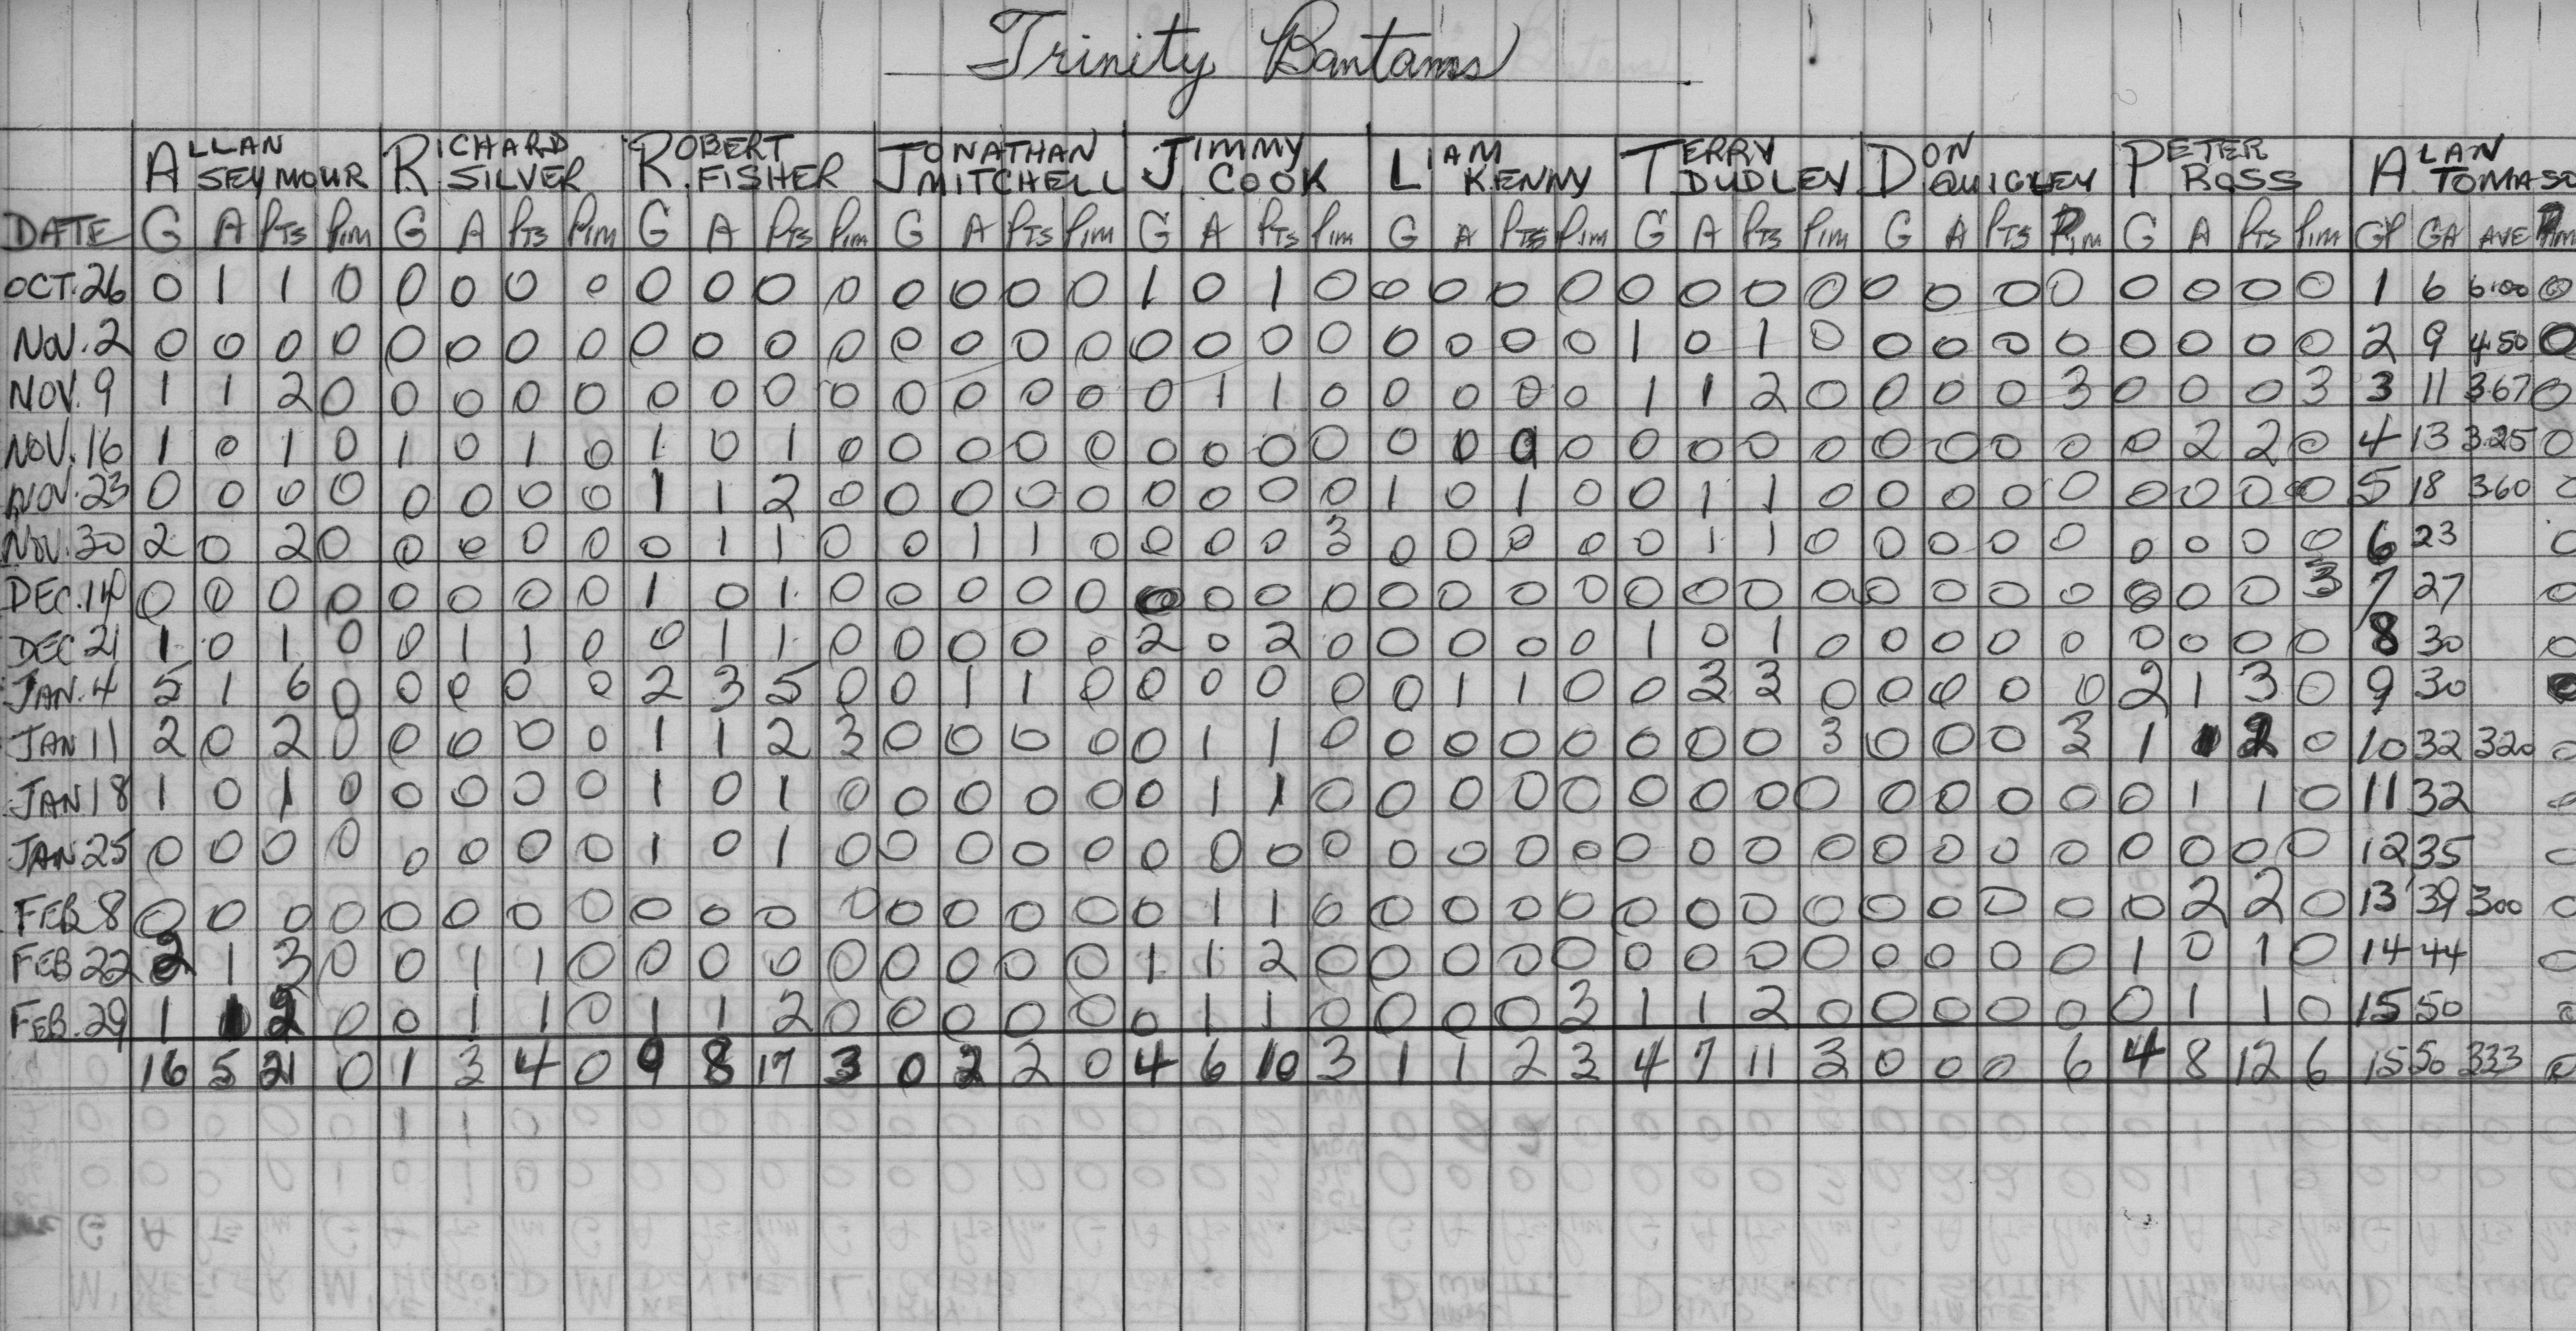 Trinity Bantams
ALLAN SEYMOUR RICHARD SILVER ROBERT FISHER JONATHAN MITCHELL JIMMY COOK LIAM KENNY TERRY DUDLEY DON QUIGLEY PETER ROSS ALAN TOMASO
DATE G A PTS PIM G A PTS PIM G A PTS PIM G A PTS PIM G A PTS PIM G A PTS PIM G A PTS PIM G A PTS PIM G A PTS PIM GP GA AVE PIM
OCT.26 0 1 1 0 0 0 0 0 0 0 0 0 0 0 0 0 1 0 1 0 0 0 0 0 0 0 0 0 0 0 0 0 0 0 0 0 1 6 6.00 0
NOV.2 0 0 0 0 0 0 0 0 0 0 0 0 0 0 0 0 0 0 0 0 0 0 0 0 1 0 1 0 0 0 0 0 0 0 0 0 2 9 4.50 0
NOV.9 1 1 2 0 0 0 0 0 0 0 0 0 0 0 0 0 0 1 1 0 0 0 0 0 1 1 2 0 0 0 0 3 0 0 0 3 3 11 3.67 0
NOV.16 1 0 1 0 1 0 1 0 1 0 1 0 0 0 0 0 0 0 0 0 0 0 0 0 0 0 0 0 0 0 0 0 0 2 2 0 4 13 3.25 0
NOV.23 0 0 0 0 0 0 0 0 1 1 2 0 0 0 0 0 0 0 0 0 1 0 1 0 0 1 1 0 0 0 0 0 0 0 0 0 5 18 360 0
NOV.30 2 0 2 0 0 0 0 0 0 1 1 0 0 1 1 0 0 0 0 3 0 0 0 0 0 1 1 0 0 0 0 0 0 0 0 0 6 23 0
DEC.14 0 0 0 0 0 0 0 0 1 0 1 0 0 0 0 0 0 0 0 0 0 0 0 0 0 0 0 0 0 0 0 0 0 0 0 3 7 27 0
DEC 21 1 0 1 0 0 1 1 0 0 1 1 0 0 0 0 0 2 0 2 0 0 0 0 0 1 0 1 0 0 0 0 0 0 0 0 0 8 30 0
JAN.4 5 1 6 0 0 0 0 0 2 3 5 0 0 1 1 0 0 0 0 0 0 1 1 0 0 3 3 0 0 0 0 0 2 1 3 0 9 30
JAN 11 2 0 2 0 0 0 0 0 1 1 2 3 0 0 0 0 0 1 1 0 0 0 0 0 0 0 0 3 0 0 0 3 1 1 2 0 10 32 320 0
JAN 18 1 0 1 0 0 0 0 0 1 0 1 0 0 0 0 0 0 1 1 0 0 0 0 0 0 0 0 0 0 0 0 0 0 1 1 0 11 32 0
JAN 25 0 0 0 0 0 0 0 0 1 0 1 0 0 0 0 0 0 0 0 0 0 0 0 0 0 0 0 0 0 0 0 0 0 0 0 0 12 35 0
FEB 8 0 0 0 0 0 0 0 0 0 0 0 0 0 0 0 0 0 1 1 0 0 0 0 0 0 0 0 0 0 0 0 0 0 2 2 0 13 39 300 0
FEB 22 2 1 3 0 0 1 1 0 0 0 0 0 0 0 0 0 1 1 2 0 0 0 0 0 0 0 0 0 0 0 0 0 1 0 1 0 14 44 0
FEB.29 1 1 2 0 0 1 1 0 1 1 2 0 0 0 0 0 0 1 1 0 0 0 0 3 1 1 2 0 0 0 0 0 0 1 1 0 15 50 0
16 5 21 0 1 3 4 0 9 8 17 3 0 2 2 0 4 6 10 3 1 1 2 3 4 7 11 3 0 0 0 6 4 8 12 6 15 50 333 0